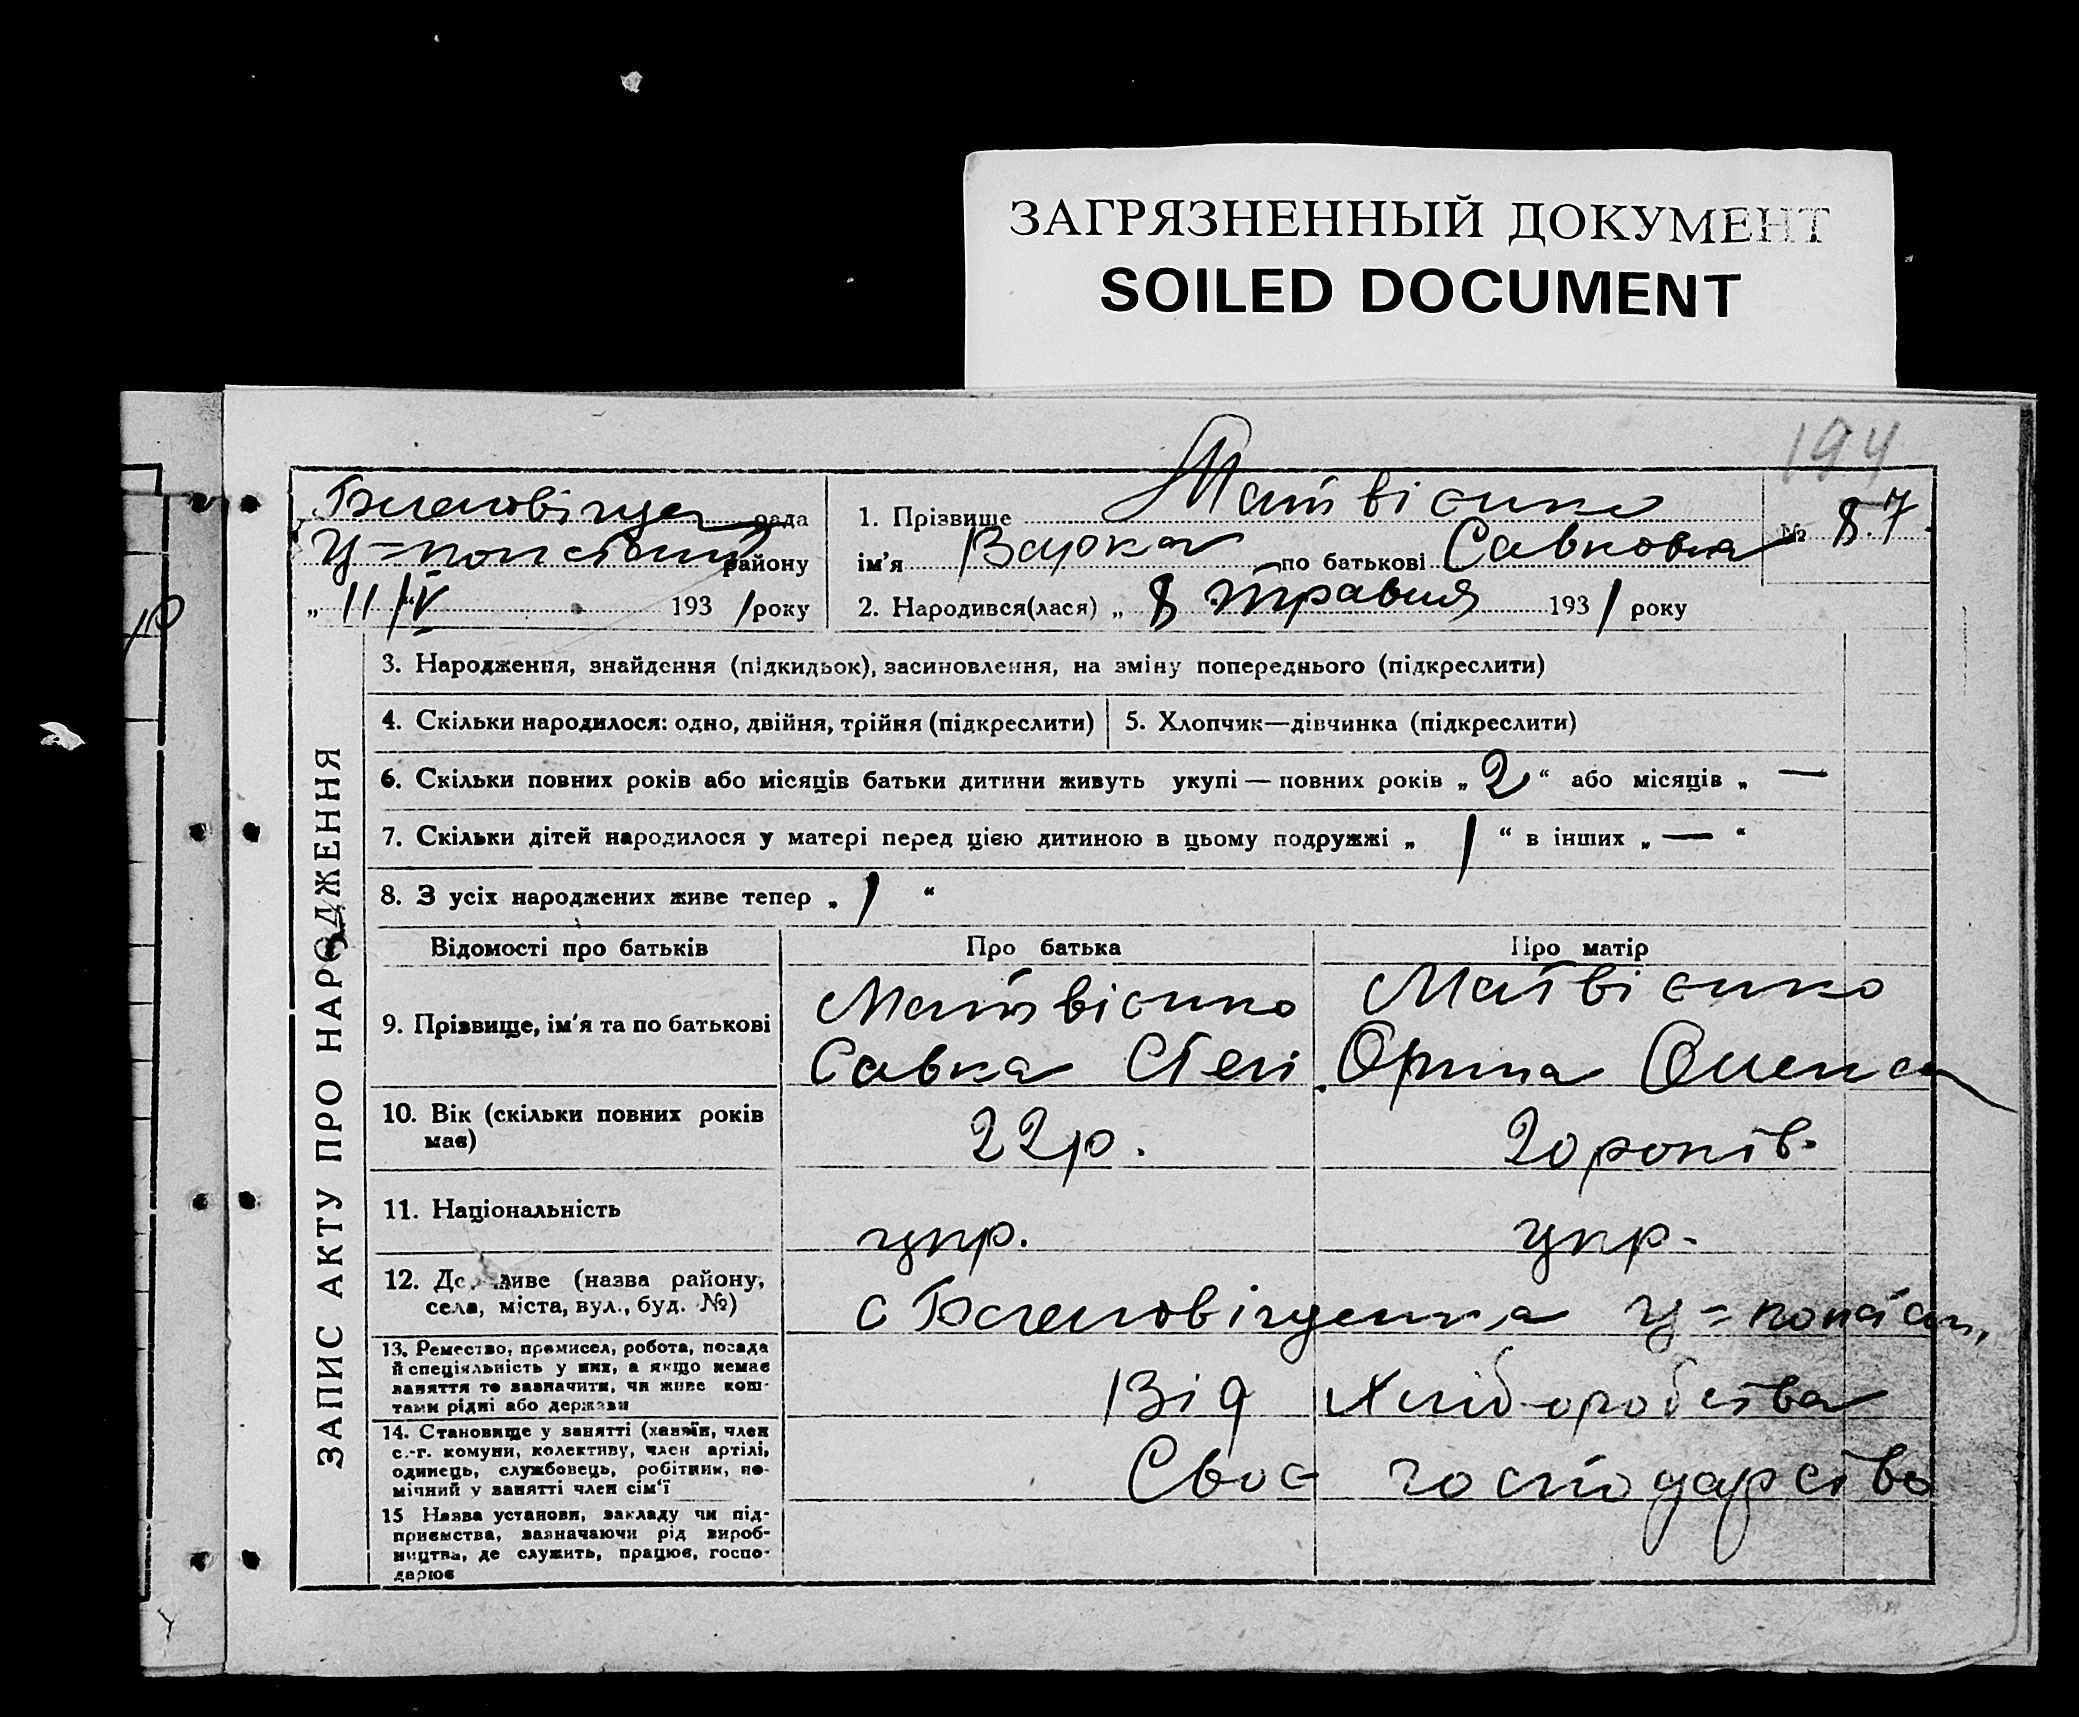 ЗАГРЯЗНЕННЫЙ ДОКУМЕНТ
SOILED DOCUMENT
194
рада
району
„ 11/V 193 1 року
1. Прізвище Матвієнко
ім'я Варка по батькові Савковна
2. Народився(лася) „ 8 травня 193 1 року
№ 87
ЗАПИС АКТУ ПРО НАРОДЖЕННЯ
3. Народження, знайдення (підкидьок), засиновлення, на зміну попереднього (підкреслити)
4. Скільки народилося: одно, двійня, трійня (підкреслити)
5. Хлопчик—дівчинка (підкреслити)
6. Скільки повних років або місяців батьки дитини живуть укупі — повних років „ 2 “ або місяців „ —
7. Скільки дітей народилося у матері перед цією дитиною в цьому подружжі „ 1 “ в інших „ — “
8. З усіх народжених живе тепер „ 1 “
Відомості про батьків
Про батька
Про матір
9. Прізвище, ім'я та по батькові
Матвієнко
Савка
Матвієнко
Орина
10. Вік (скільки повних років
має)
22 р.
20 років.
11. Національність
укр.
укр.
12. Де живе (назва району,
села, міста, вул., буд. №)
с
13. Ремество, промисел, робота, посада
й спеціяльність у них, а якщо немає
заняття то зазначити, чи живе кош-
тами рідні або держави
Від Хліборобства
14. Становище у занятті (хазяїн, член
с.-г. комуни, колективу, член артілі,
одинець, службовець, робітник, по-
мічний у занятті член сім'ї
Своє господарство
15 Назва установи, закладу чи під-
приємства, зазначаючи рід вироб-
ництва, де служить, працює, госпо-
дарює